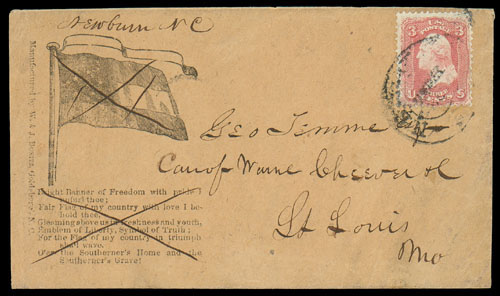 Newburn N C
Manufactured by W. & J. Bonitz, Goldsboro N. C.
3 U.S. POSTAGE 3
U THREE CENTS S
Geo Timme
Care of Warne Cheever &
St Louis
Mo
Bright Banner of Freedom with pride I
unfurl thee;
Fair Flag of my country with love I be-
hold thee,
Gleaming above us in freshness and youth,
Emblem of Liberty, Symbol of Truth;
For the Flag of my country in triumph
shall wave,
O'er the Southerner's Home and the
Southerner's Grave!